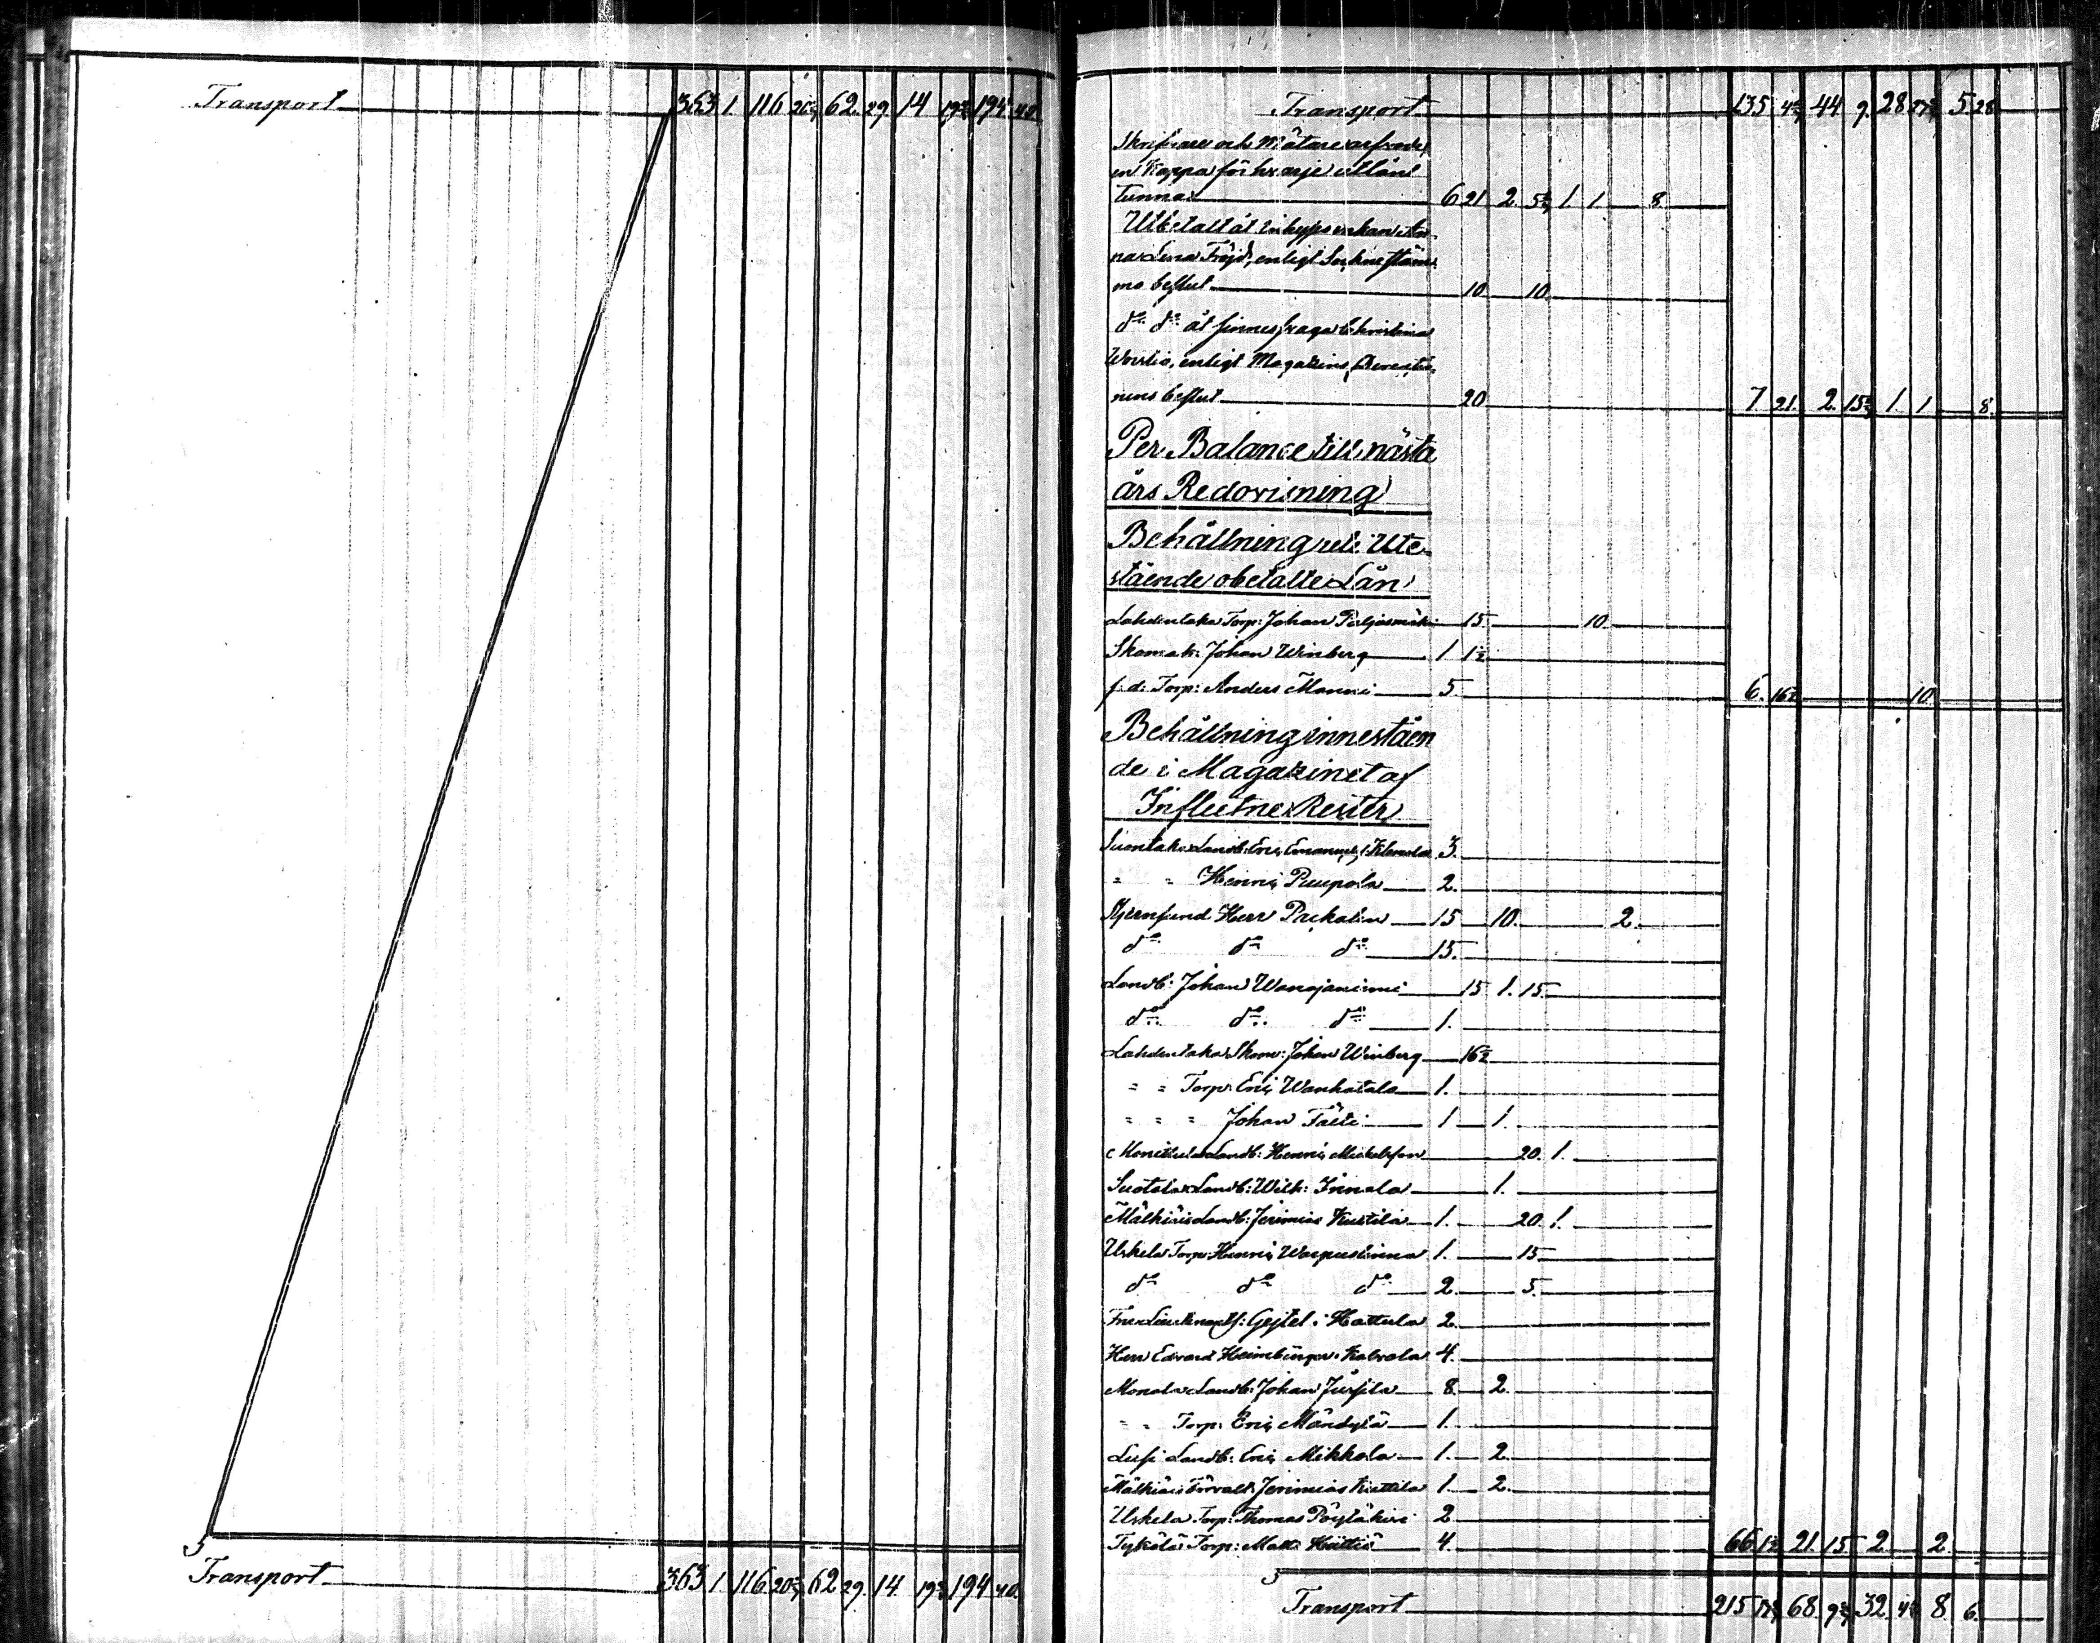 Transport 363 1. 116 20¾ 62. 29. 14 19¾ 194 40.
Transport 363 1. 116 20¾ 62 29. 14. 19¾ 194 40.
Transport 135 4¾ 44 9. 28 27¾ 5 28
Skrifvare och Mätare arfvode,
en Kappa för hvarje utlånt
tunna 6 21. 2. 5¾ 1. 1. 8.
Utbetalt åt inhyses enkan An
na Lena Fröjd, enligt Sockne stäm
mo beslut 10 10
do do åt Christina
enligt Magazins Direktio
nens beslut 20 7 21. 2. 15¾ 1. 1. 8.
Per Balance till nästa
års Redovisning
Behållning uti Ute
stående obetalte Lån
Lahdentaka Torp: Johan Paljasmäki 15. 10.
Skomak: Johan Winberg 1 1½
f: d: Torp: Anders Manni 5. 6. 16½ 10
Behållning inneståen
de i Magazinet af
Influtne Rester
Suontaka Landb: Eric Emanuels: Klemola 3.
" " Henric Puupola 2.
Herr Packalen 15 10. 2.
do do do 15.
Landb: Johan Wanajaniemi 15 1. 15.
do do do 1.
Lahdentaka Skom: Johan Winberg 16½
" " Torp: Eric Wanhatalo 1.
" " " Johan Fälti 1 1.
Monikkala Landb: Henric Mickelsson 20. 1.
Suotala Landb: Wilh: Innala 1.
Mälkiäis Landb: Jerimias Kuttila 1. 20. 1.
Uskela Torp: Henric Warpuslinna 1. 15
do do do 2. 5.
Gejtel i Hattula 2.
Herr Edvard Heimbürger i Kalvola 4.
Monala Landb: Johan Jussila 8. 2.
" " Torp: Eric Mändylä 1.
Lusi Landb: Eric Mikkola 1. 2.
Mälkiäis Förvalt: Jerimias Kuttila 1. 2.
Uskela Torp: Thomas Pöytäkivi 2
Tykölä Torp: Matts Hättiö 4. 66 1½ 21. 15. 2. 2.
Transport 215 68. 9¾ 32. 8. 6.